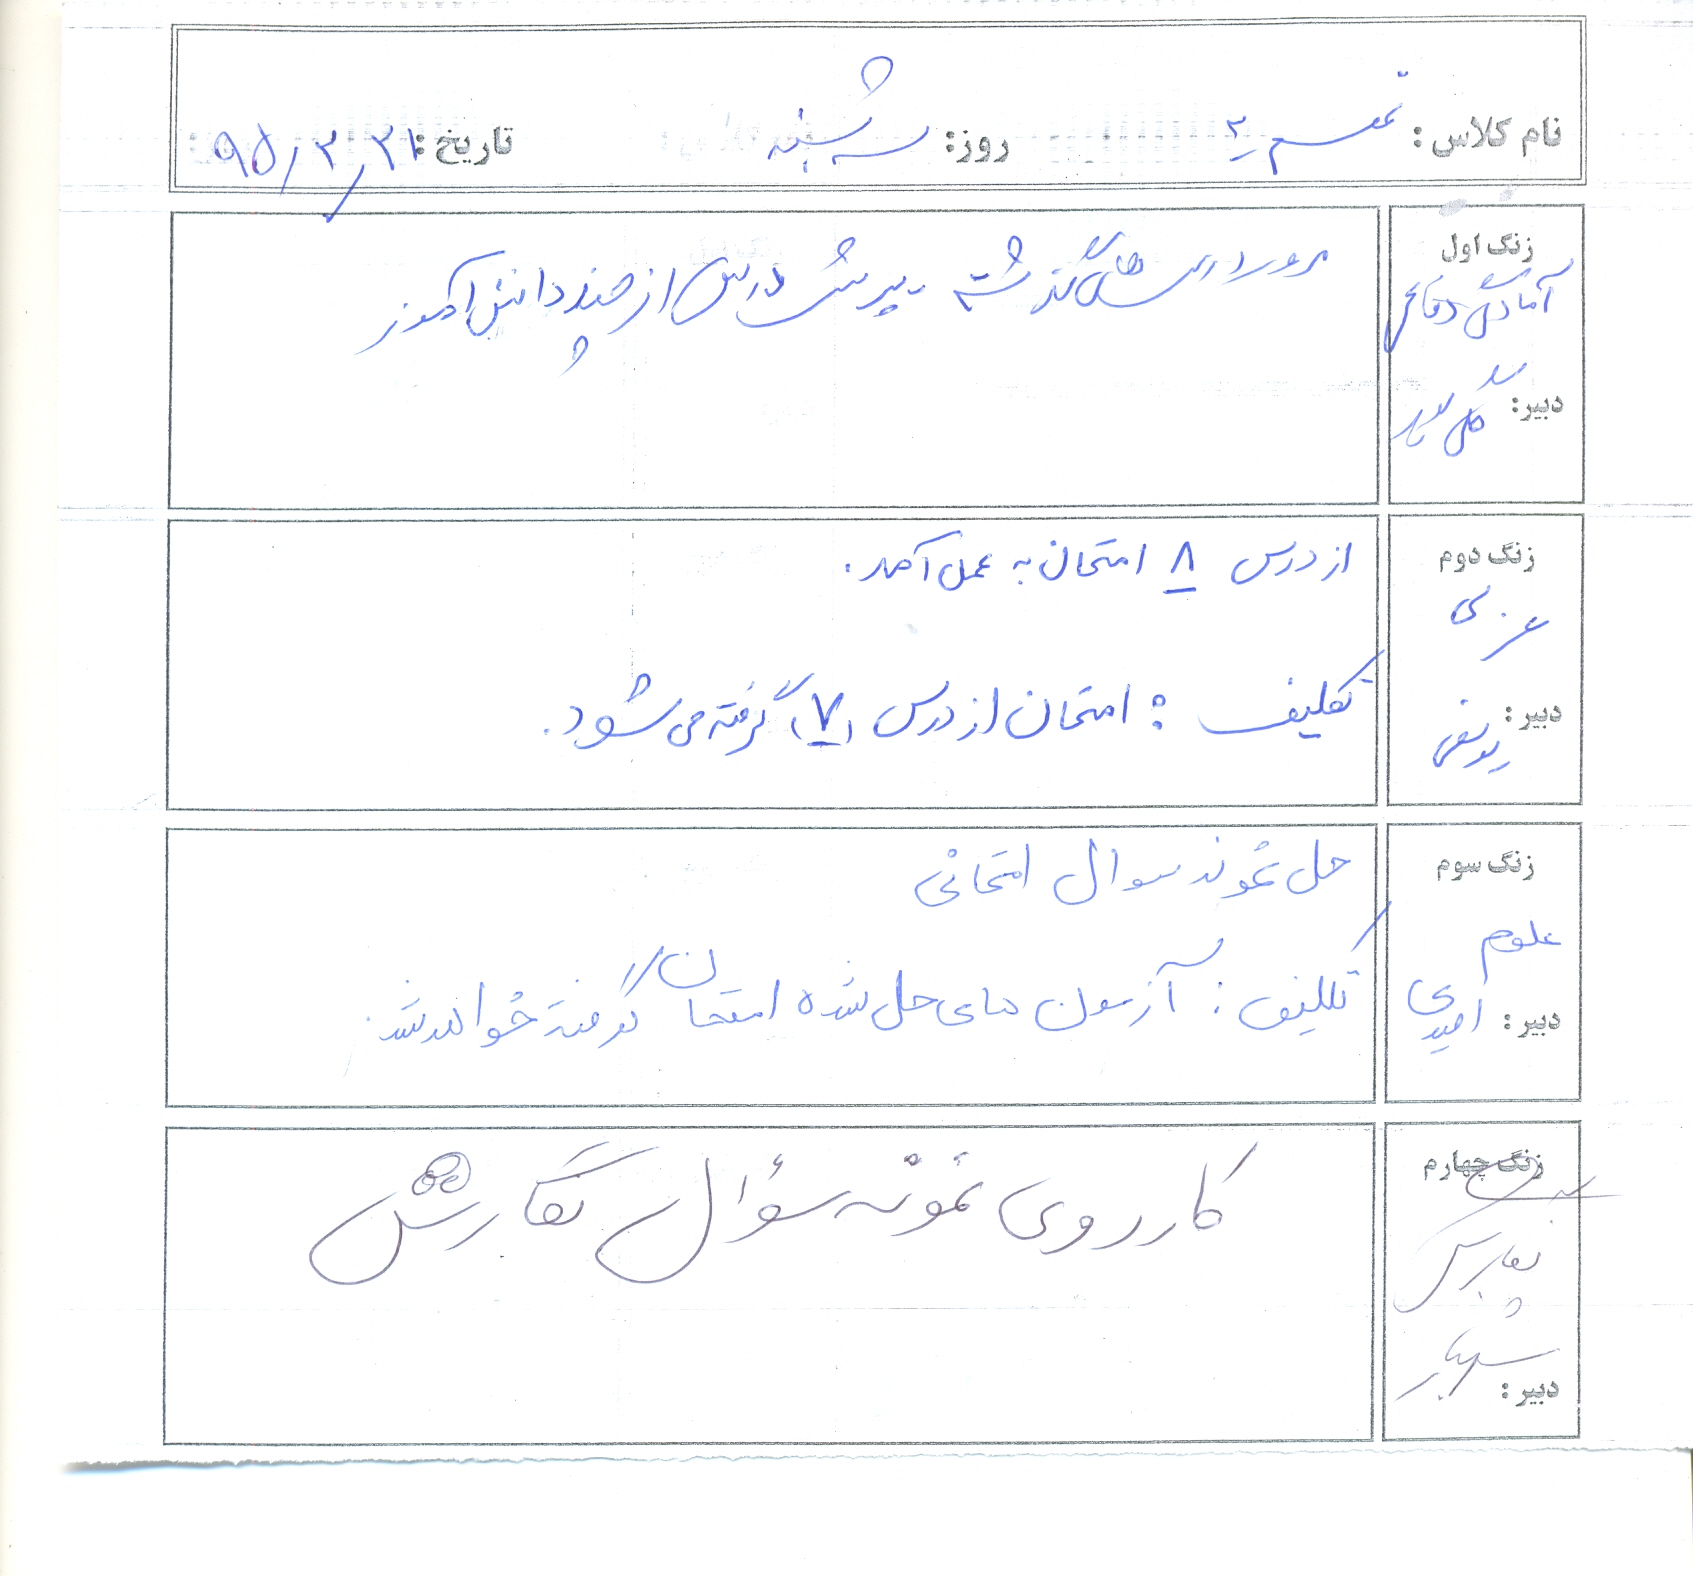 نام کلاس: نهم ۲ روز: سه شنبه تاریخ: ۹۵/۲/۲۱
زنگ اول
آمادگی دفاعی
دبیر: گلی پور
مرور درس های گذشته - پرسش درس از چند دانش آموز
زنگ دوم
عربی
دبیر: یوسفی
از درس ۸ امتحان به عمل آمد.
تکلیف: امتحان از درس (۷) گرفته می شود.
زنگ سوم
علوم
دبیر: امیدی
حل نمونه سوال امتحانی
تکلیف: آزمون های حل شده امتحان گرفته خواهد شد.
زنگ چهارم
نگارش
دبیر:
کار روی نمونه سؤال نگارش